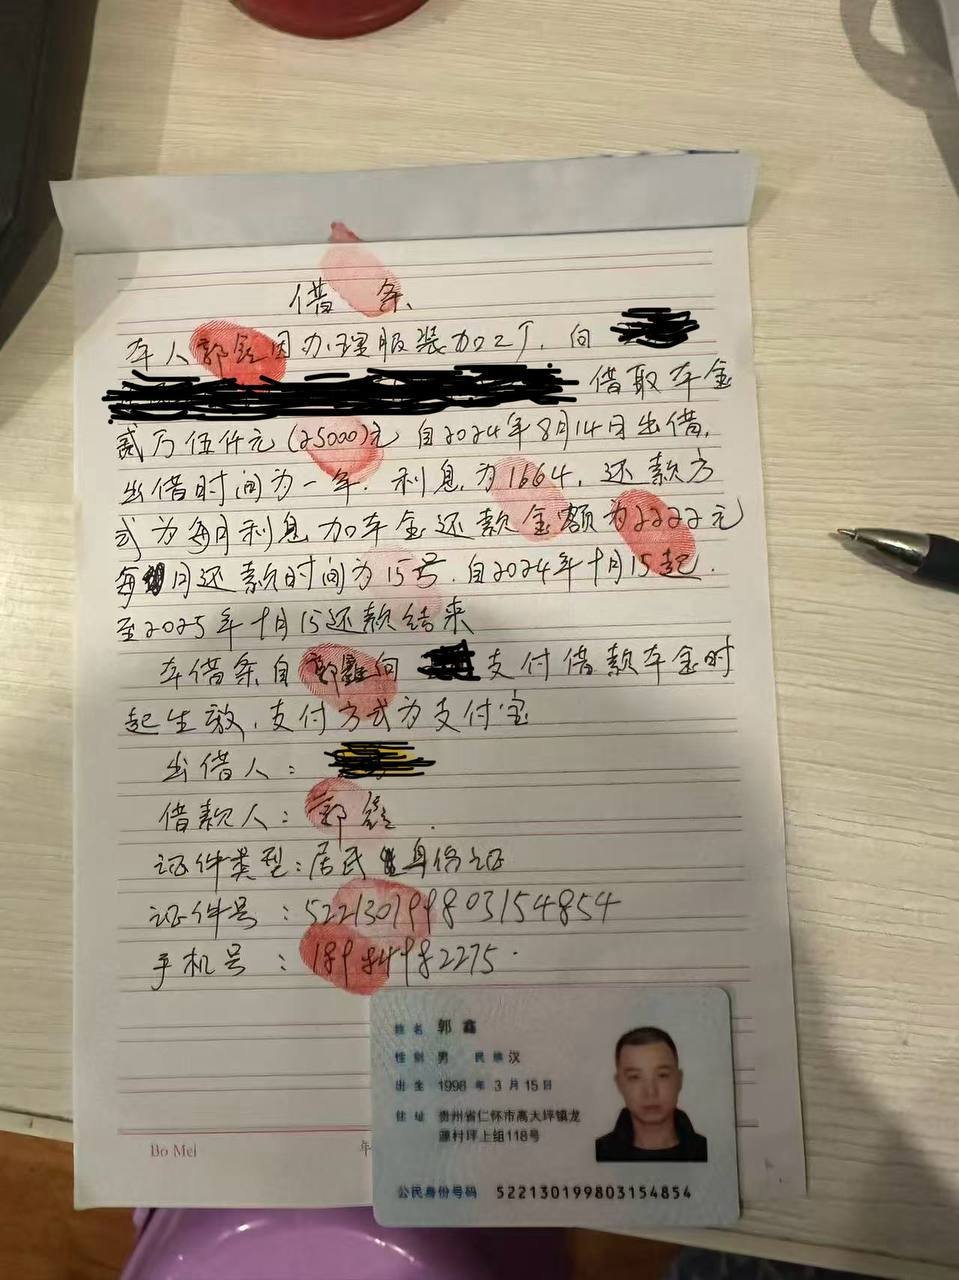 借条
本人郭鑫因办理服装加工厂,向
借取本金
贰万伍仟元(25000)元 自2024年8月14日出借,
出借时间为一年.利息为1664,还款方
式为每月利息加本金还款金额为2222元
每月还款时间为15号.自2024年十月15起.
至2025年十月15还款结束
本借条自郭鑫向 支付借款本金时
起生效,支付方式为支付宝
出借人:
借款人:郭鑫.
证件类型:居民身份证
证件号:522130199803154854
手机号:18984982275
姓名 郭鑫
性别 男 民族 汉
出生 1998年3月15日
住址 贵州省仁怀市高大坪镇龙
源村坪上组118号
公民身份号码 522130199803154854
Bo Mei 年